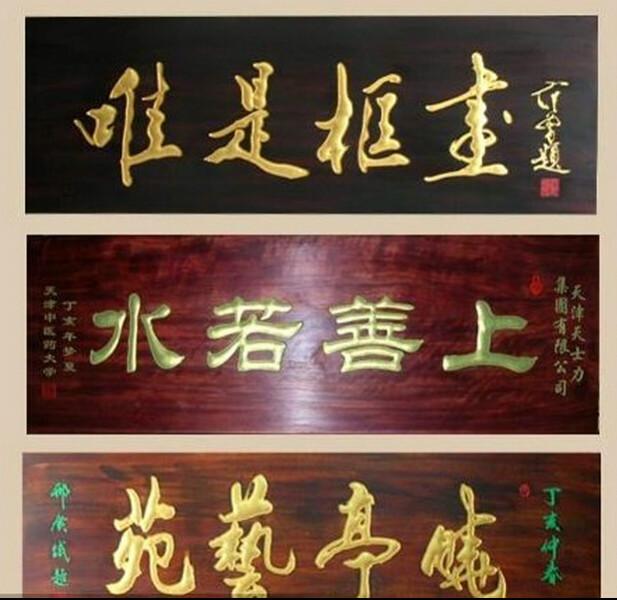 唯是框畫
題
天津天士力
集團有限公司
上善若水
丁亥年
天津中医药大学
丁亥仲春
曉亭藝苑